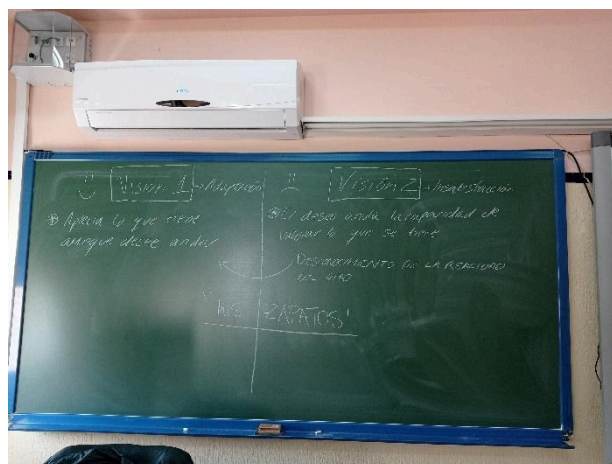 Visión 1 → Adaptación
* Aprecia lo que tiene
aunque desee andar
Visión 2 → Insatisfacción
* El deseo anula la capacidad de
valorar lo que se tiene
DESCONOCIMIENTO DE LA REALIDAD
DEL OTRO
"MIS ZAPATOS"